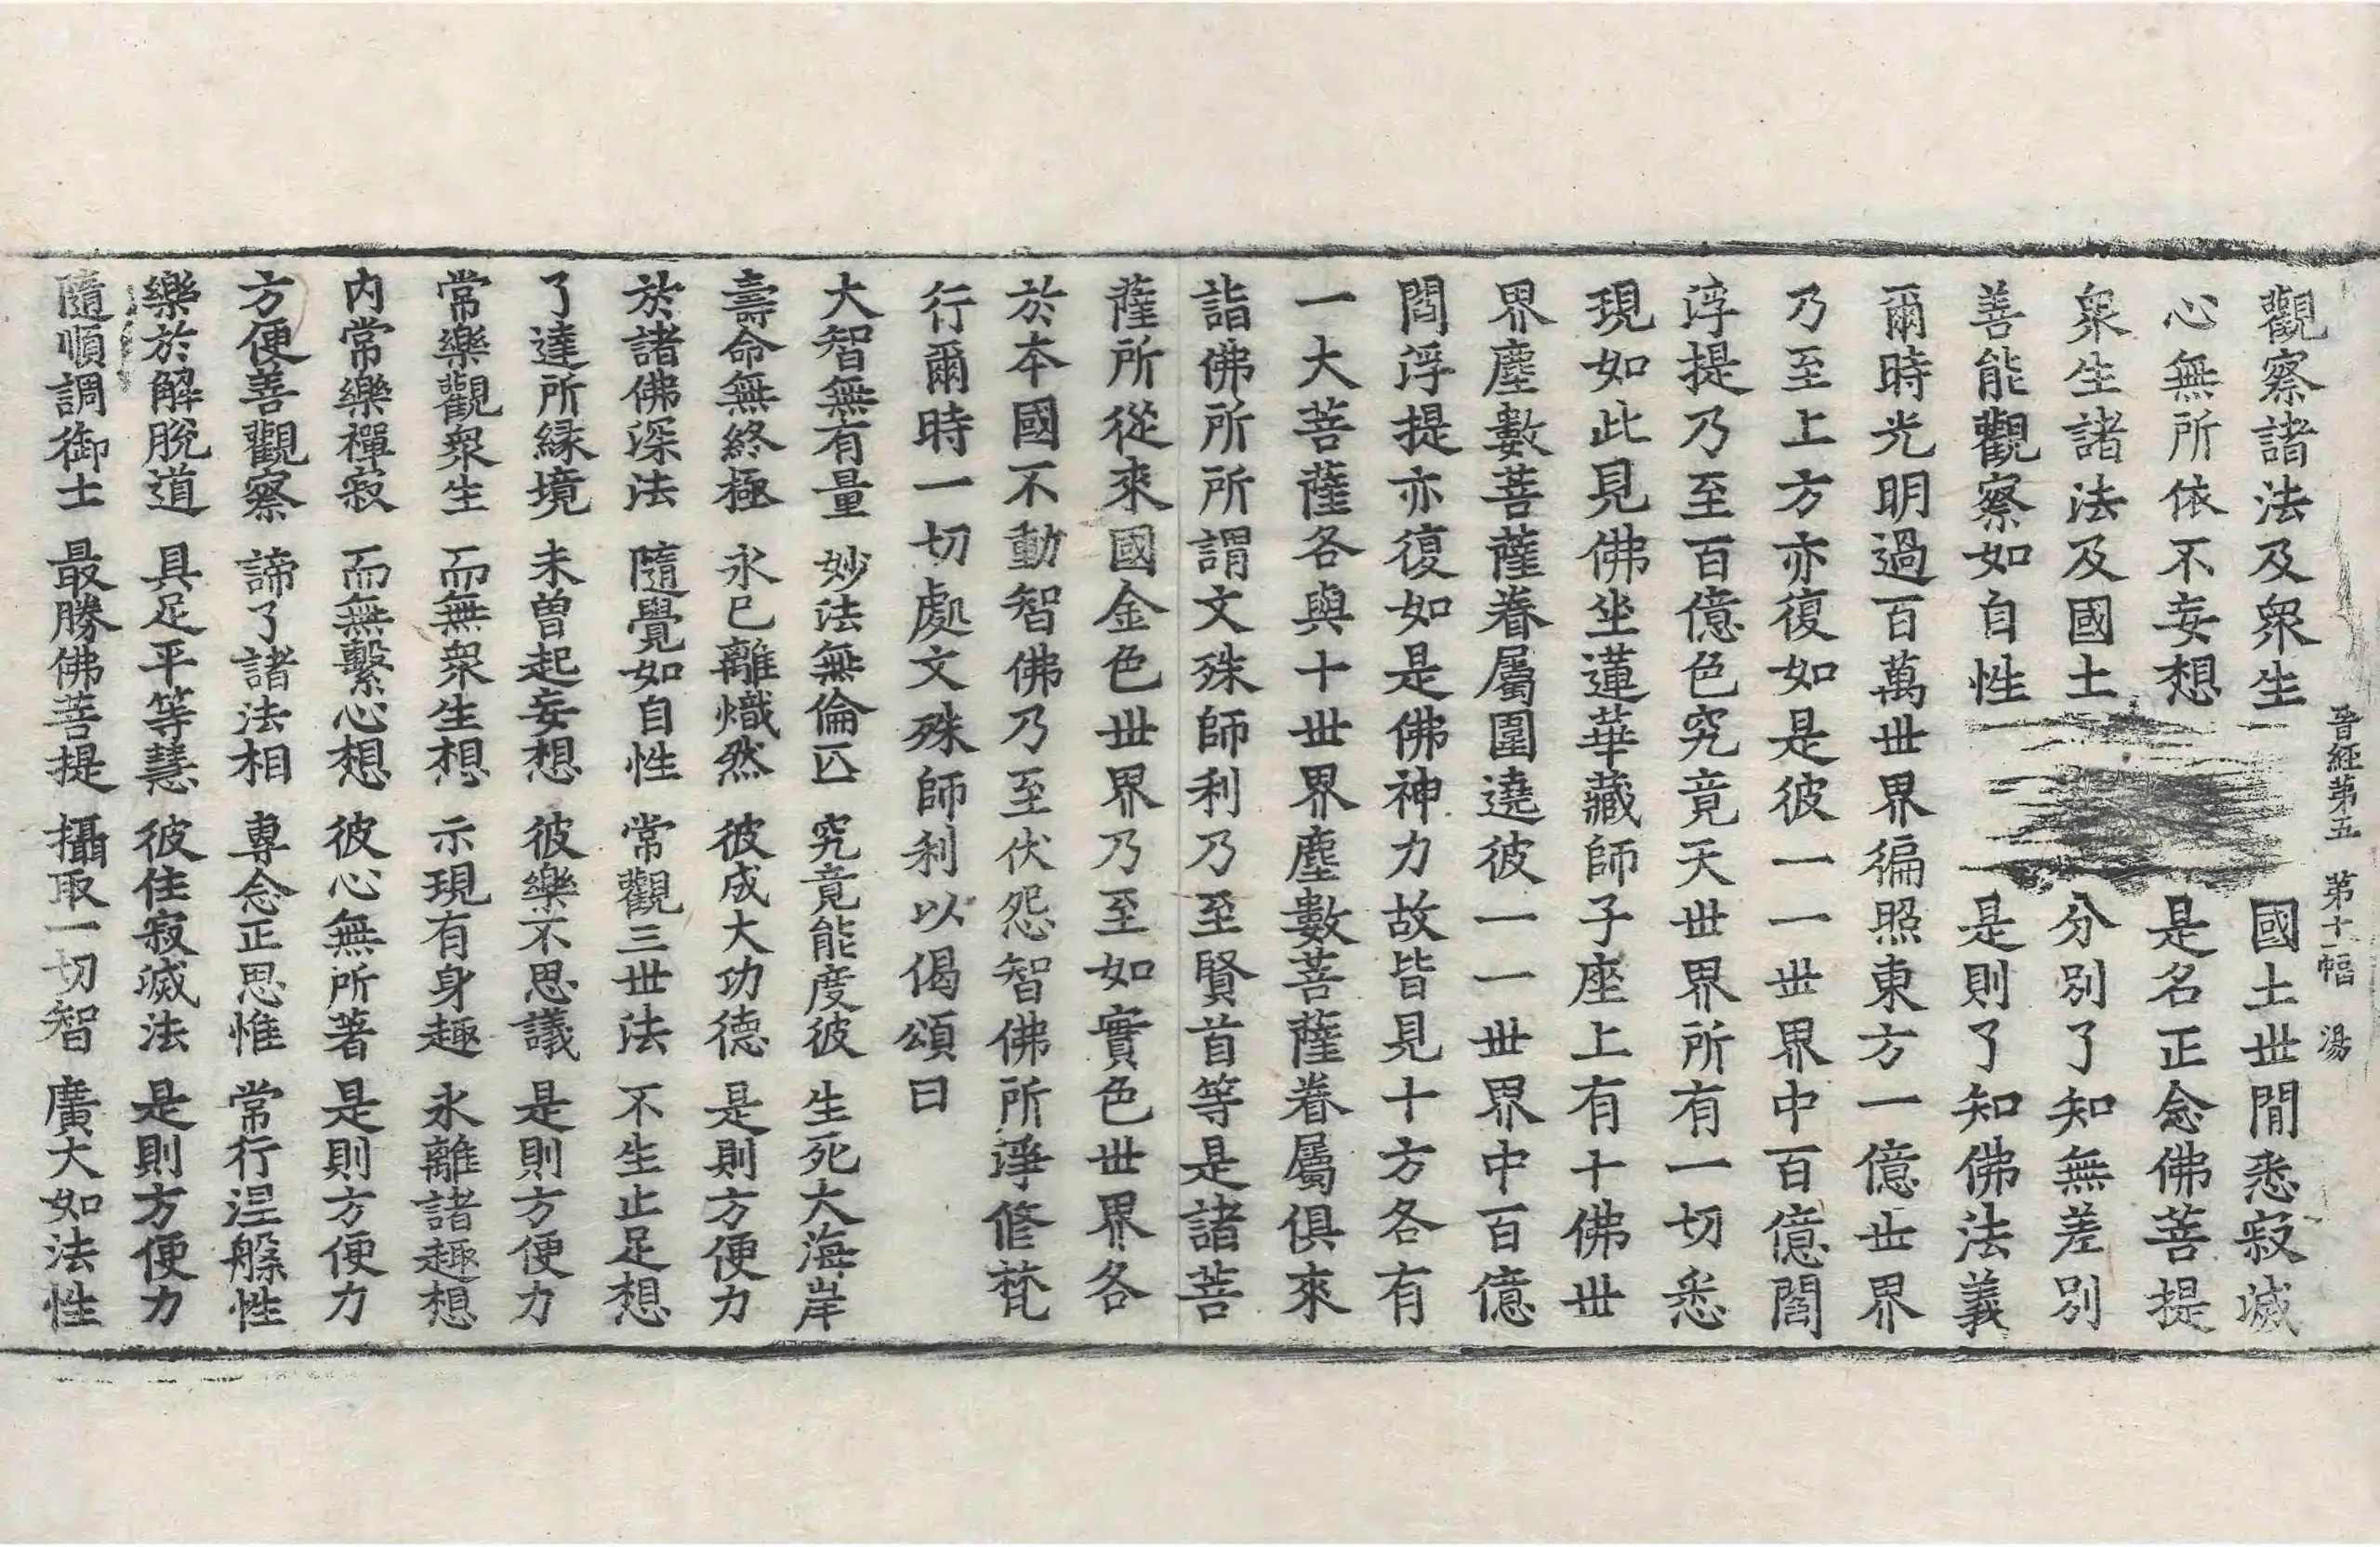 晉經第五 第十一幅 湯
觀察諸法及衆生 國土世間悉寂滅
心無所依不妄想 是名正念佛菩提
衆生諸法及國土 分別了知無差別
善能觀察如自性 是則了知佛法義
爾時光明過百萬世界徧照東方一億世界
乃至上方亦復如是彼一一世界中百億閻
浮提乃至百億色究竟天世界所有一切悉
現如此見佛坐蓮華藏師子座上有十佛世
界塵數菩薩眷屬圍遶彼一一世界中百億
閻浮提亦復如是佛神力故皆見十方各有
一大菩薩各與十世界塵數菩薩眷屬俱來
詣佛所所謂文殊師利乃至賢首等是諸菩
薩所從來國金色世界乃至如實色世界各
於本國不動智佛乃至伏怨智佛所淨修梵
行爾時一切處文殊師利以偈頌曰
大智無有量 妙法無倫匹 究竟能度彼 生死大海岸
壽命無終極 永已離熾然 彼成大功德 是則方便力
於諸佛深法 隨覺如自性 常觀三世法 不生止足想
了達所緣境 未曾起妄想 彼樂不思議 是則方便力
常樂觀衆生 而無衆生想 示現有身趣 永離諸趣想
內常樂禪寂 而無繫心想 彼心無所著 是則方便力
方便善觀察 諦了諸法相 專念正思惟 常行涅槃性
樂於解脫道 具足平等慧 彼住寂滅法 是則方便力
隨順調御士 最勝佛菩提 攝取一切智 廣大如法性